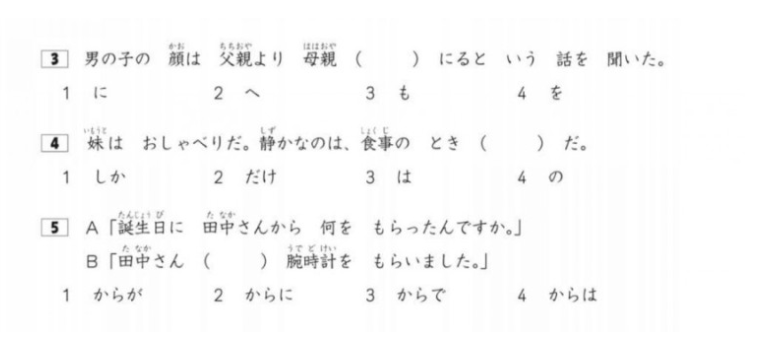 3 男の子の 顔は 父親より 母親 (　　) にると いう 話を 聞いた。
1 に　2 へ　3 も　4 を
4 妹は おしゃべりだ。静かなのは、食事の とき (　　) だ。
1 しか　2 だけ　3 は　4 の
5 A「誕生日に 田中さんから 何を もらったんですか。」
B「田中さん (　　) 腕時計を もらいました。」
1 からが　2 からに　3 からで　4 からは